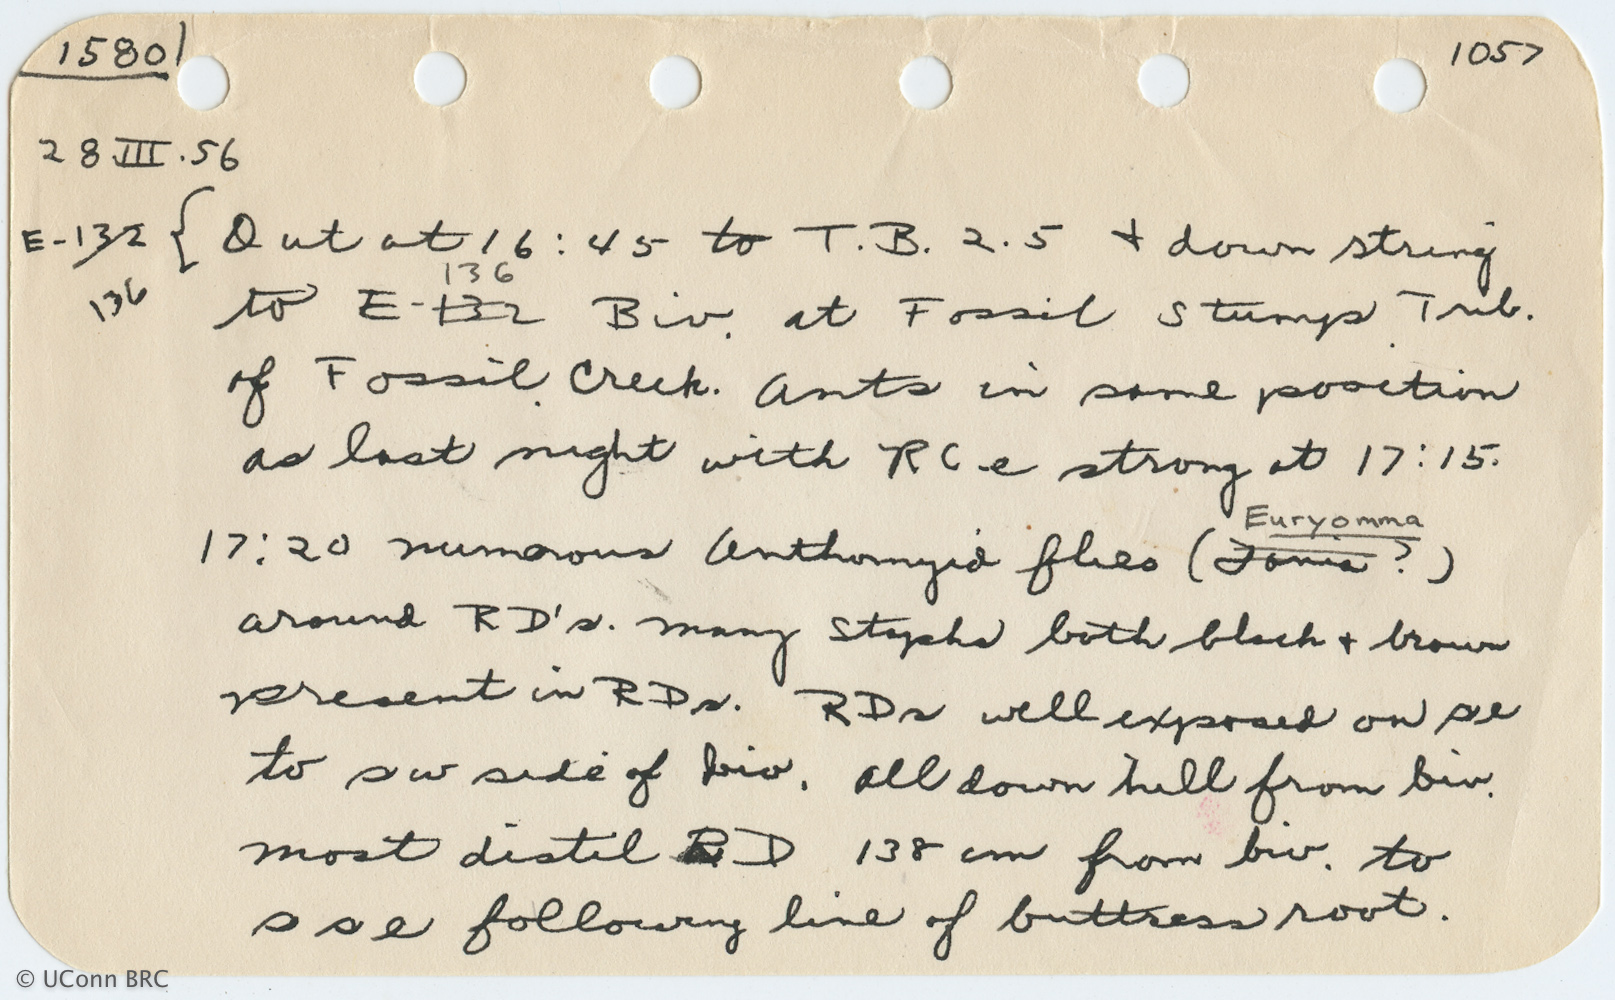 1580 1057
28 III.56
E-132 { Out at 16:45 to T.B. 2.5 + down string
136
136 to E-132 Biv. at Fossil Stumps Trib.
of Fossil Creek. Ants in same position
as last night with RC e strong at 17:15.
Euryomma
17:20 numerous Anthomyid flies (Fania?)
around RD's. Many Staphs both black + brown
present in RDs. RDs well exposed on se
to sw side of biv. All down hill from biv.
most distil RD 138 cm from biv. to
sse following line of buttress root.
© UConn BRC